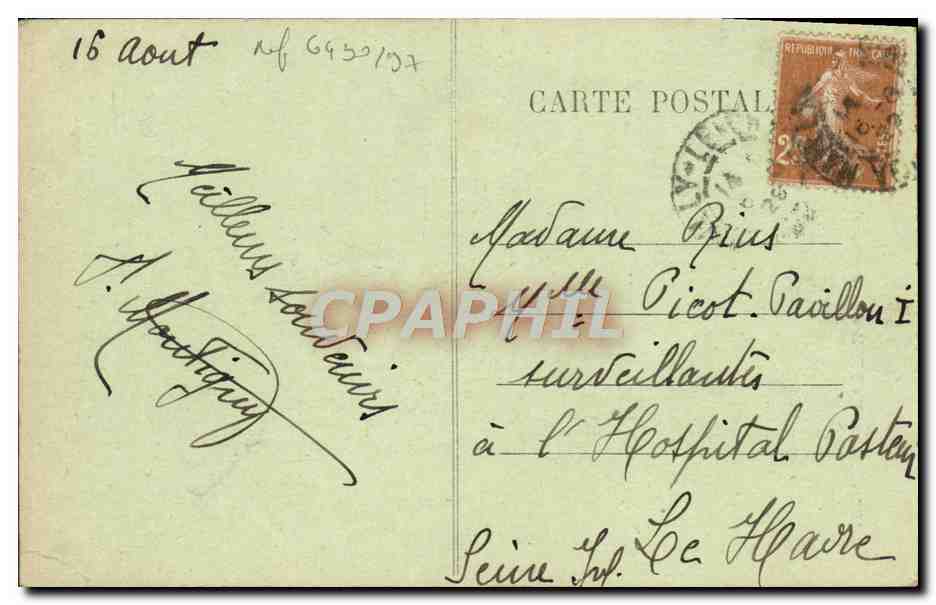 16 Aout
ref 6430/97
CARTE POSTALE
REPUBLIQUE FRANÇAISE
Meilleurs souvenirs
J. Montigny
Madame Rius
Mlle Picot. Pavillon I
surveillantes
à l'Hospital Pasteur
Le Havre
Seine Inf.
CPAPHIL